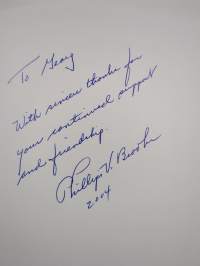 To Gerry
With sincere thanks for
your continued support
and friendship.
Phillip V. Brooks
2004